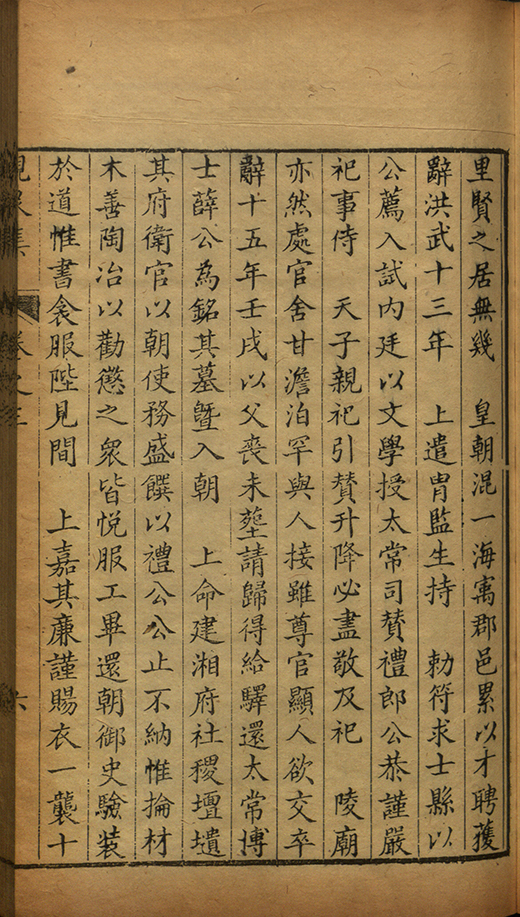 里賢之居無幾　皇朝混一海㝢郡邑累以才聘獲
辭洪武十三年　上遣胄監生持　勑符求士縣以
公薦入試內廷以文學授太常司贊禮郎公恭謹嚴
祀事侍　天子親祀引贊升降必盡敬及祀　陵廟
亦然處官舍甘澹泊罕與人接雖尊官顯人欲交卒
辭十五年壬戌以父喪未塟請歸得給驛還太常博
士薛公為銘其墓曁入朝　上命建湘府社稷壇壝
其府衛官以朝使務盛饌以禮公公止不納惟掄材
木善陶冶以勸懲之衆皆悅服工畢還朝御史驗装
於道惟書衾服陛見間　上嘉其廉謹賜衣一襲十
卷之三
六